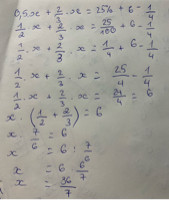 0,5·x + 2/3 · x = 25% + 6 - 1/4
1/2 · x + 2/3 · x = 25/100 + 6 - 1/4
1/2 · x + 2/3 · x = 1/4 + 6 - 1/4
1/2 · x + 2/3 · x = 25/4 - 1/4
1/2 · x + 2/3 · x = 24/4 = 6
x · (1/2 + 2/3) = 6
x · 7/6 = 6
x = 6 : 7/6
x = 6 · 6/7
x = 36/7